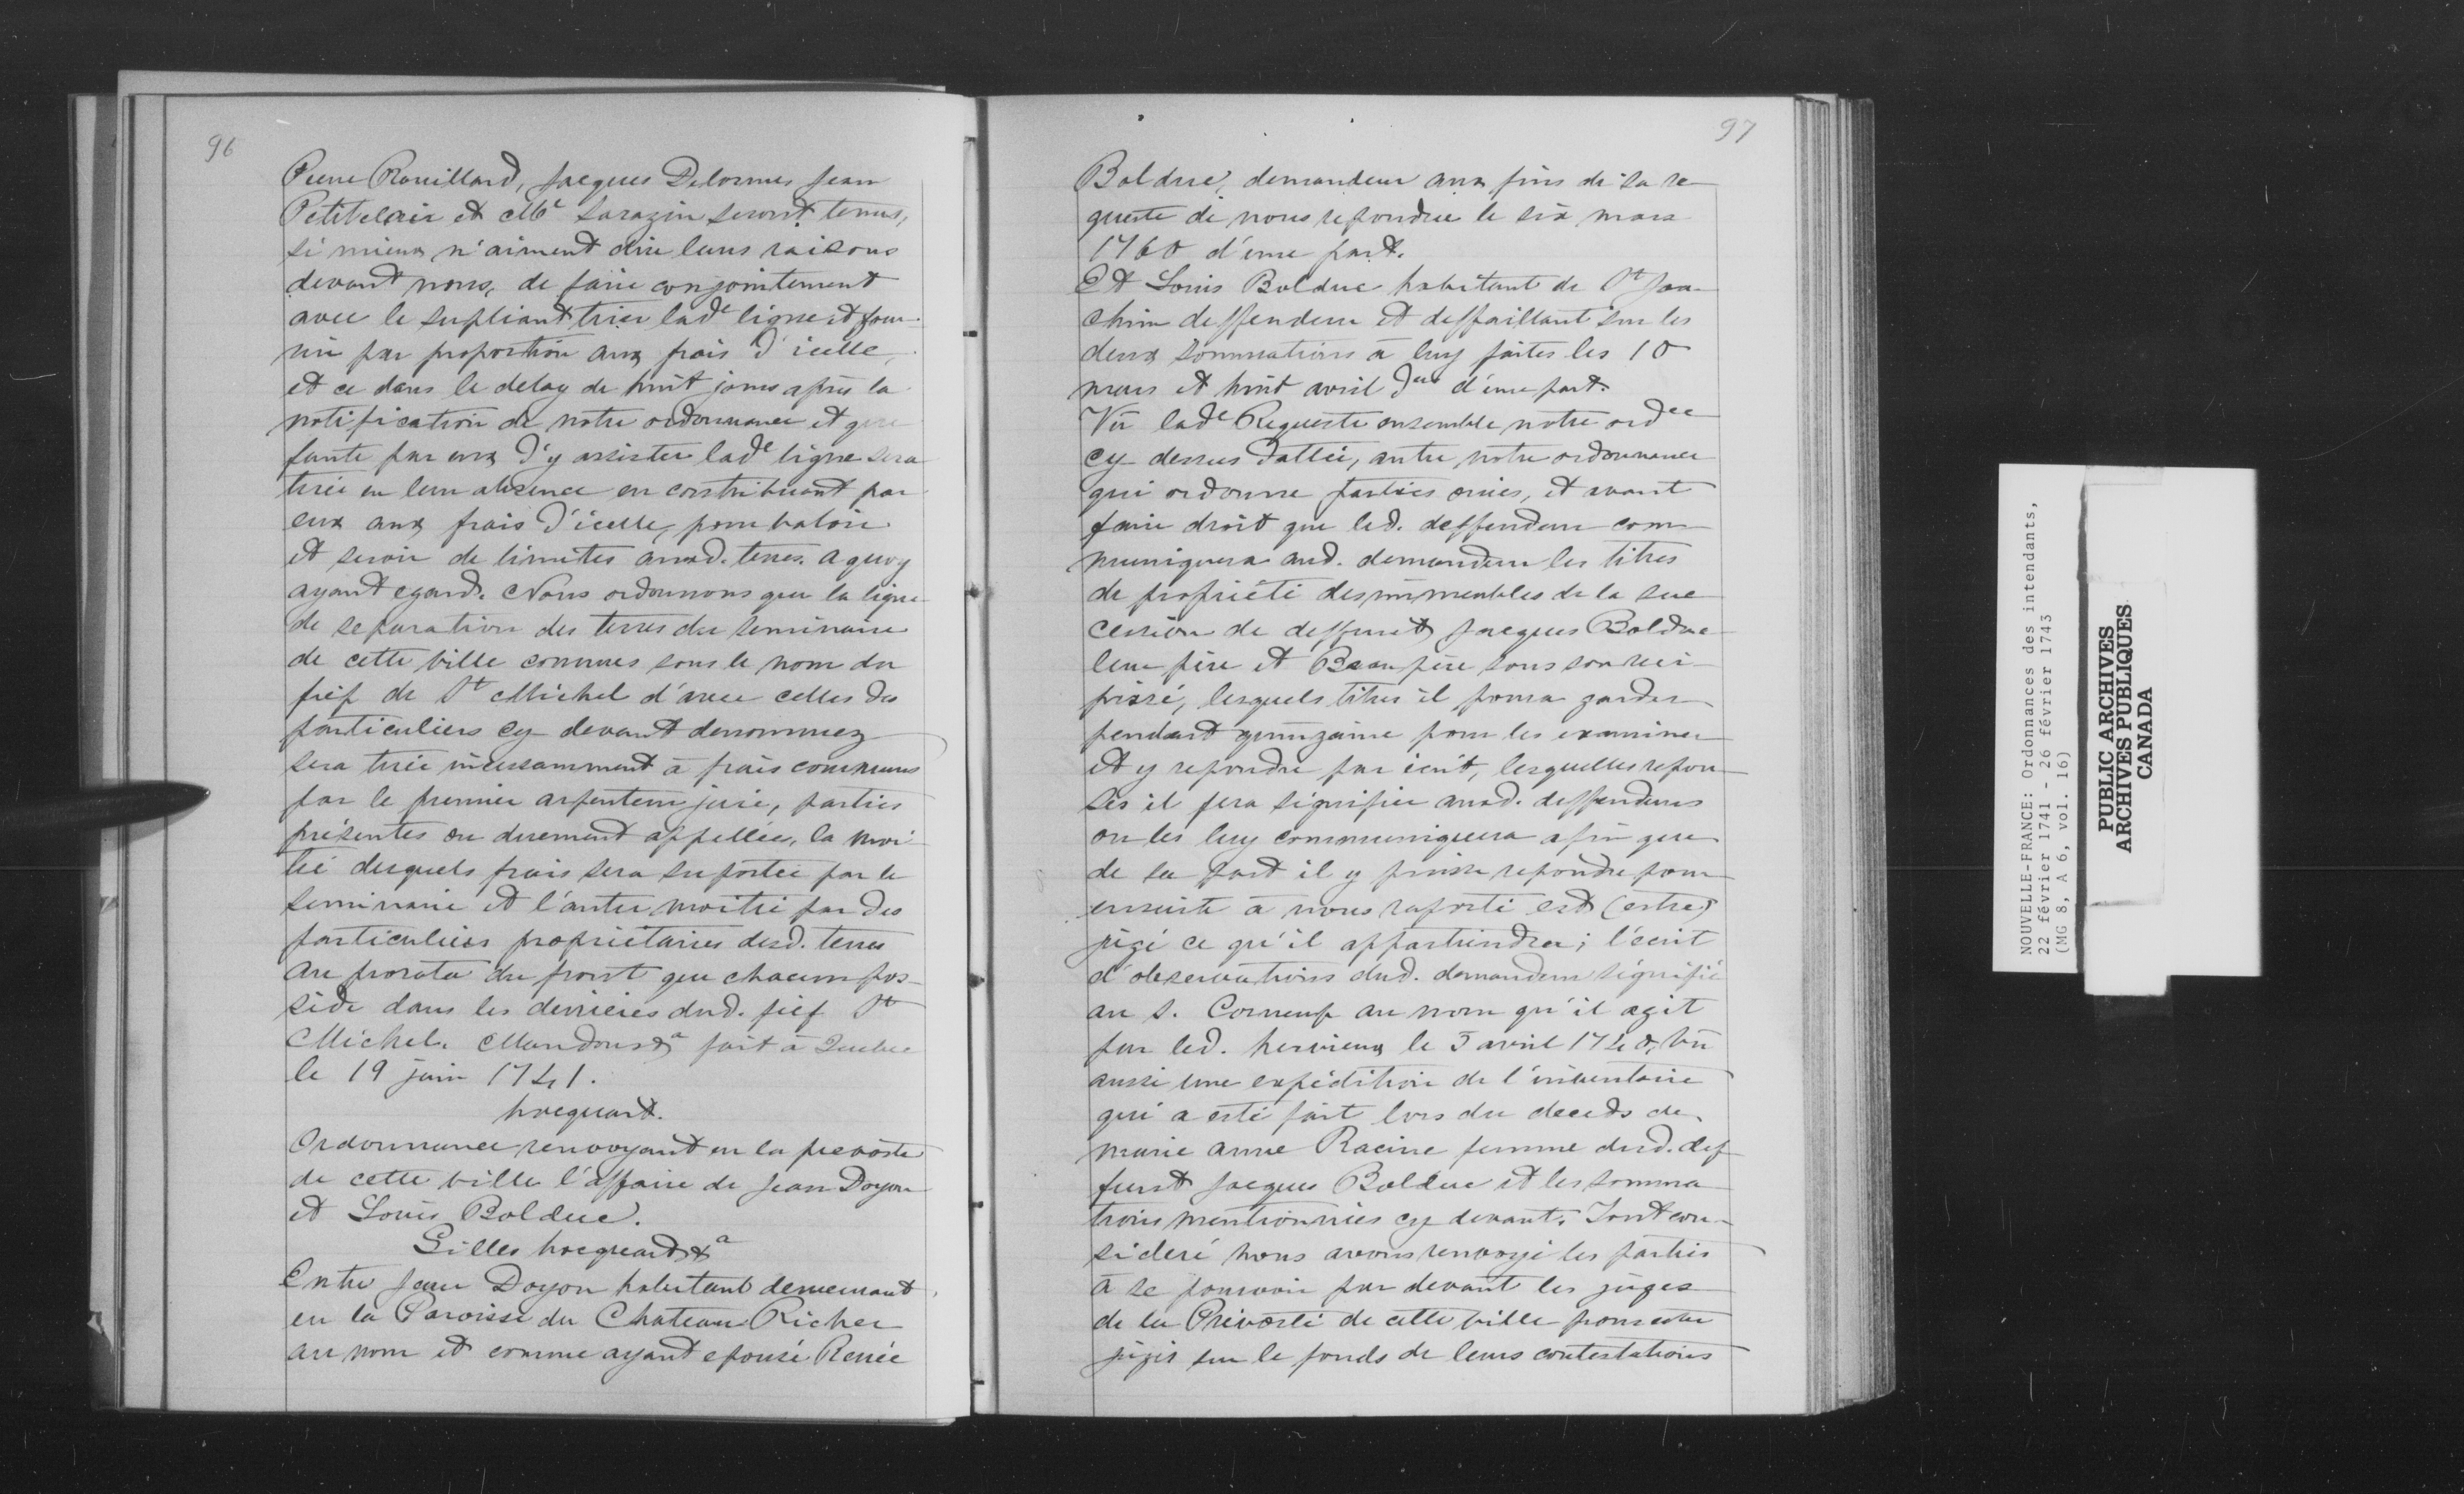 96
Pierre Rouillard, Jacques Delormes Jean
Petitclair et Me Sarazin seront tenus,
si mieux n'aiment dire leurs raisons
devant nous, de faire conjointement
avec le supliant tirer lade ligne et four-
nir par proportion aux frais d'icelle,
et ce dans le delay de huit jours après la
notification de notre ordonnance et que
faute par eux d'y assister lade ligne sera
tirée en leur absence en contribuant par
eux aux frais d'icelle, pour valoir
et servir de limites auxd. terres. a quoy
ayant egard. Nous ordonnons que la ligne
de separation des terres du seminaire
de cette ville connues sous le nom du
fief de St Michel d'avec celles des
particuliers cy devant denommez
sera tirée incessamment à frais communs
par le premier arpenteur juré, parties
présentes ou duement appellées, la moi-
tié desquels frais sera suportée par le
seminaire et l'autre moitié par des
particuliers propriétaires desd. terres
au prorata du front que chacun pos-
sède dans les derrieres dud. fief St
Michel. Mandons &a fait à Quebec
le 19 juin 1741.
hocquart.
Ordonnance renvoyant en la prevosté
de cette ville l'affaire de Jean Doyon
et Louis Bolduc.
Gilles hocquart &a
Entre Jean Doyon habitant demeurant
en la Paroisse du Chateau Richer
au nom et comme ayant epousé Renée
97
Bolduc, demandeur aux fins de sa re-
queste de nous repondue le six mars
1760 d'une part.
Et Louis Bolduc habitant de St Joa-
chim deffendeur et deffaillant sur les
deux sommations à luy faites les 10
mars et huit avril der d'une part.
Vû lade Requeste ensemble notre ordce
cy dessus dattée, autre notre ordonnance
qui ordonne parties ouies, et avant
faire droit que led. deffendeur com-
muniquera aud. demandeur les titres
de propriété des immeubles de la suc
cession de deffunt Jacques Bolduc
leur père et Beau père sous son reci-
pissé, lesquels titres il poura garder
pendant quinzaine pour les examiner
et y repondre par écrit, lesquelles repon-
ses il fera signifier auxd. deffendeurs
ou les luy communiquera afin que
de sa part il y puisse repondre pour
ensuite à nous raporté est (estre)
jugé ce qu'il appartiendra; l'écrit
d'observations dud. demandeur signifié
au S. Corneup au nom qu'il agit
par led. hervieux le 3 avril 1740, vû
aussi une expédition de l'inventaire
qui a esté fait lors du deceds de
marie anne Racine femme dud. def
funt Jacques Bolduc et les somma
tions mentionnées cy devant. Tout con-
sideré nous avons renvoyé les parties
à se pourvoir par devant les juges
de la Prévosté de cette ville pour estre
jugés sur le fonds de leurs contestations
NOUVELLE-FRANCE: Ordonnances des intendants,
22 février 1741 - 26 février 1743
(MG 8, A 6, vol. 16)
PUBLIC ARCHIVES
ARCHIVES PUBLIQUES
CANADA